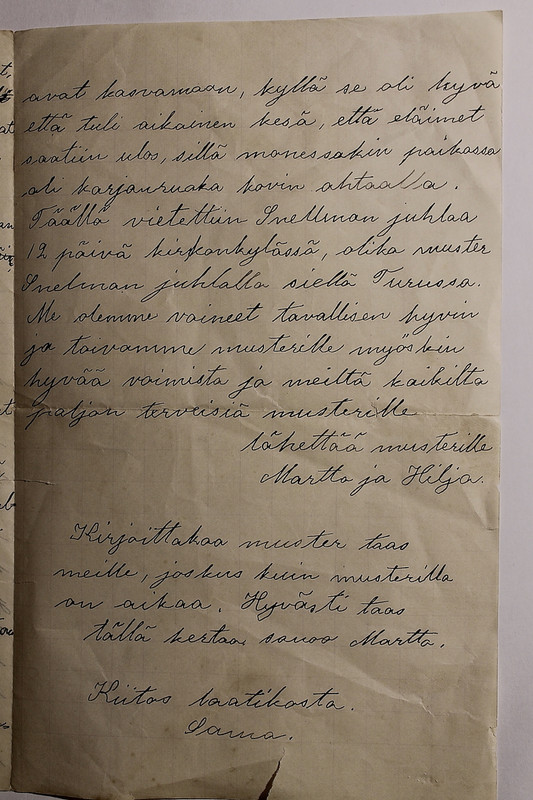 avat kasvamaan, kyllä se oli hyvä
että tuli aikainen kesä, että eläimet
saatiin ulos, sillä monessakin paikassa
oli karjanruaka kovin ahtaalla.
Täällä vietettiin Snellman juhlaa
12 päivä kirkonkylässä, olika muster
Snelman juhlalla siellä Turussa.
Me olemme voineet tavallisen hyvin
ja toivomme musterille myöskin
hyvää voimista ja meiltä kaikilta
paljon terveisiä musterille
lähettää musterille
Martta ja Hilja.
Kirjoittakaa muster taas
meille, joskus kuin musterilla
on aikaa. Hyvästi taas
tällä kertaa sanoo Martta.
Kiitos laatikosta.
Sama.